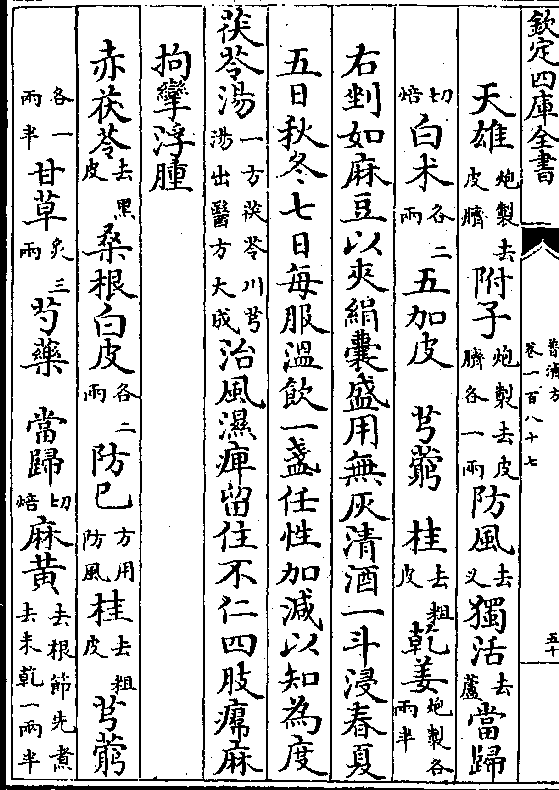 欽定四庫全書
普濟方 卷一百八十七 五十
天雄炮製去皮臍附子炮製去皮臍各一兩防風去叉獨活去蘆當歸
切焙白术各二兩五加皮 芎藭 桂去粗皮乾姜炮製各兩半
右剉如麻豆以夾絹囊盛用無灰清酒一斗浸春夏
五日秋冬七日每服溫飲一盞任性加減以知為度
茯苓湯一方茯苓川芎湯出醫方大成治風濕痺留住不仁四肢㿏麻
拘攣浮腫
赤茯苓去黑皮桑根白皮各二兩防已方用防風桂去粗皮芎藭
各一兩半甘草炙三兩芍藥 當歸切焙麻黃去根節先煮去末乾一兩半